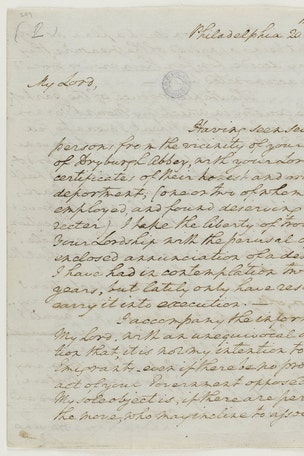 Philadelphia 20
My Lord,
Having seen
persons from the vicinity of your
of Dryburgh Abbey, with your Lor
certificates of their honest and
deportment, (one or two of who
employed, and found deserving
racter) I take the liberty of
Your Lordship with the perusal
enclosed annunciation of a de
I have had in contemplation
years, but lately only have res
carry it into execution.—
I accompany the infor
My Lord, with an unequivocal
tion that it is not my intention to
Emigrants, even if there be no pro
act of your Government oppose
My sole object is, if there are per
the move, who may incline to asso